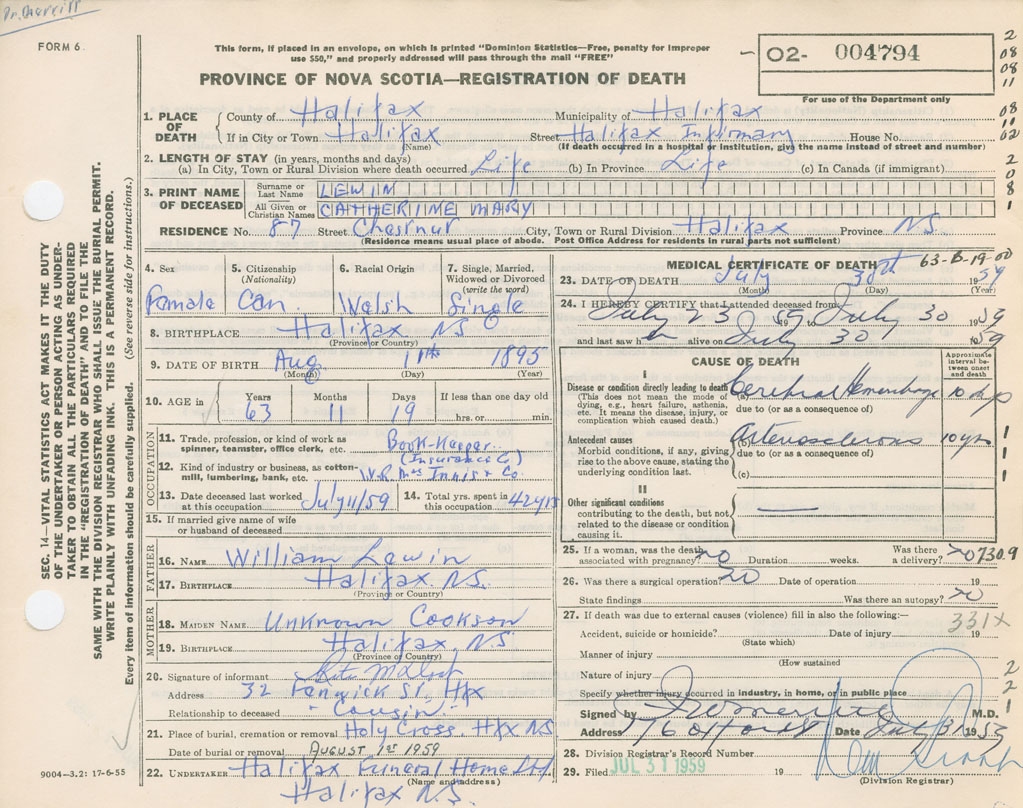 Dr. Merritt
FORM 6.
This form, if placed in an envelope, on which is printed "Dominion Statistics—Free, penalty for improper
use $50," and properly addressed will pass through the mail "FREE"
PROVINCE OF NOVA SCOTIA—REGISTRATION OF DEATH
02- 004794
For use of the Department only
2
08
08
11
08
11
02
2
0
8
1
1. PLACE OF DEATH
County of Halifax Municipality of Halifax
If in City or Town Halifax Street Halifax Infirmary House No.
(Name) (If death occurred in a hospital or institution, give the name instead of street and number)
2. LENGTH OF STAY (in years, months and days)
(a) In City, Town or Rural Division where death occurred Life (b) In Province Life (c) In Canada (if immigrant)
3. PRINT NAME OF DECEASED
Surname or Last Name LEWIN
All Given or Christian Names CATHERINE MARY
RESIDENCE No. 87 Street Chestnut City, Town or Rural Division Halifax Province N.S.
(Residence means usual place of abode. Post Office Address for residents in rural parts not sufficient)
SEC. 14—VITAL STATISTICS ACT MAKES IT THE DUTY
OF THE UNDERTAKER OR PERSON ACTING AS UNDER-
TAKER TO OBTAIN ALL THE PARTICULARS REQUIRED
IN THE "REGISTRATION OF DEATH" AND TO FILE THE
SAME WITH THE DIVISION REGISTRAR WHO SHALL ISSUE THE BURIAL PERMIT.
WRITE PLAINLY WITH UNFADING INK. THIS IS A PERMANENT RECORD.
Every item of information should be carefully supplied. (See reverse side for instructions.)
4. Sex Female
5. Citizenship (Nationality) Can
6. Racial Origin Welsh
7. Single, Married, Widowed or Divorced (write the word) Single
8. BIRTHPLACE Halifax N.S.
(Province or Country)
9. DATE OF BIRTH Aug 11th 1895
(Month) (Day) (Year)
10. AGE in Years Months Days If less than one day old
63 11 19 hrs. or min.
OCCUPATION
11. Trade, profession, or kind of work as spinner, teamster, office clerk, etc. Book-Keeper
(Insurance Co)
12. Kind of industry or business, as cotton-mill, lumbering, bank, etc. W.R. Mac Innis & Co
13. Date deceased last worked at this occupation July 11/59
14. Total yrs. spent in this occupation 42 yrs
15. If married give name of wife or husband of deceased
FATHER
16. NAME William Lewin
17. BIRTHPLACE Halifax N.S.
(Province or Country)
MOTHER
18. MAIDEN NAME Unknown Cookson
19. BIRTHPLACE Halifax N.S.
(Province or Country)
20. Signature of informant
Address 32 Fenwick St., Hfx
Relationship to deceased - Cousin -
21. Place of burial, cremation or removal Holy Cross Hfx NS
Date of burial or removal AUGUST 1st 1959
22. UNDERTAKER Halifax Funeral Home Ltd
(Name and address)
Halifax N.S.
9004—3.2: 17-6-55
MEDICAL CERTIFICATE OF DEATH 63-B-19-00
23. DATE OF DEATH July 30th 1959
(Month) (Day) (Year)
24. I HEREBY CERTIFY that I attended deceased from
July 23 1959 to July 30 1959
and last saw her alive on July 30 1959
CAUSE OF DEATH
Approximate interval between onset and death
I
Disease or condition directly leading to death (a) Cerebral Hemorrhage
(This does not mean the mode of dying, e.g., heart failure, asthenia, etc. It means the disease, injury, or complication which caused death.)
due to (or as a consequence of)
Antecedent causes (b) Arteriosclerosis 10 yrs
Morbid conditions, if any, giving rise to the above cause, stating the underlying condition last.
due to (or as a consequence of)
(c)
1
1
1
II
Other significant conditions
contributing to the death, but not related to the disease or condition causing it.
25. If a woman, was the death associated with pregnancy? no Duration weeks. Was there a delivery? no 730.9
26. Was there a surgical operation? no Date of operation 19
State findings Was there an autopsy? no
27. If death was due to external causes (violence) fill in also the following:—
331X
Accident, suicide or homicide? Date of injury 19
(State which)
Manner of injury
(How sustained)
Nature of injury
Specify whether injury occurred in industry, in home, or in public place
2
2
1
Signed by M.D.
Address 76 Oxford St Date July 31 1959
28. Division Registrar's Record Number
29. Filed JUL 31 1959 19
(Division Registrar)